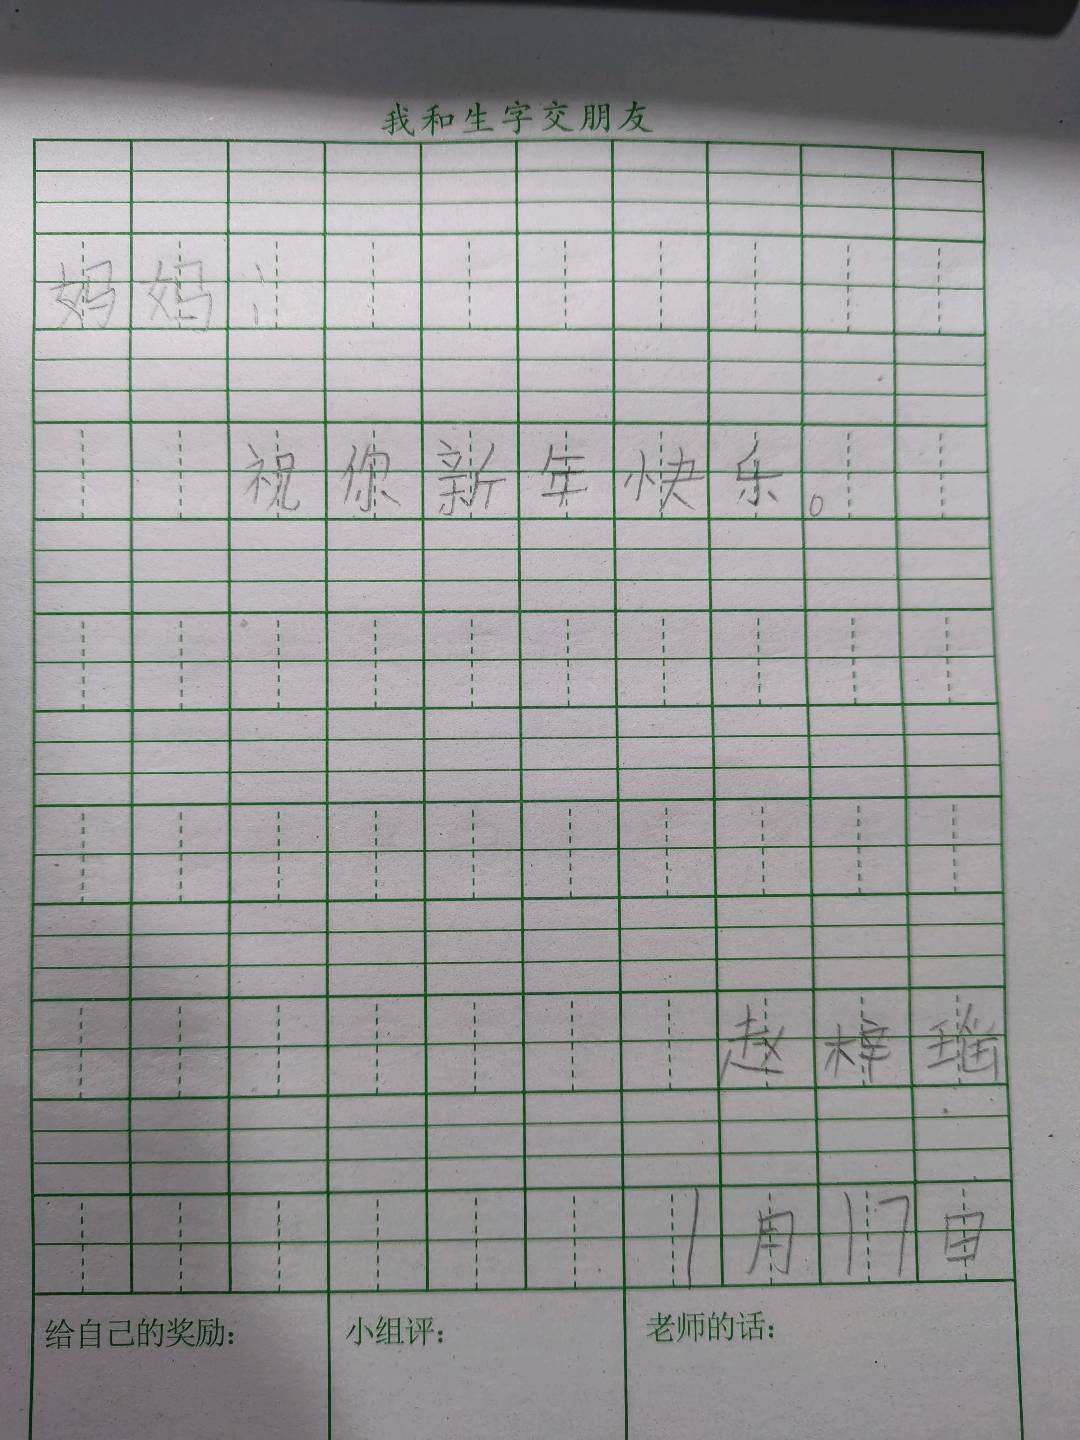 我和生字交朋友
妈妈：
祝你新年快乐。
赵梓瑶
1月17日
给自己的奖励：
小组评：
老师的话：